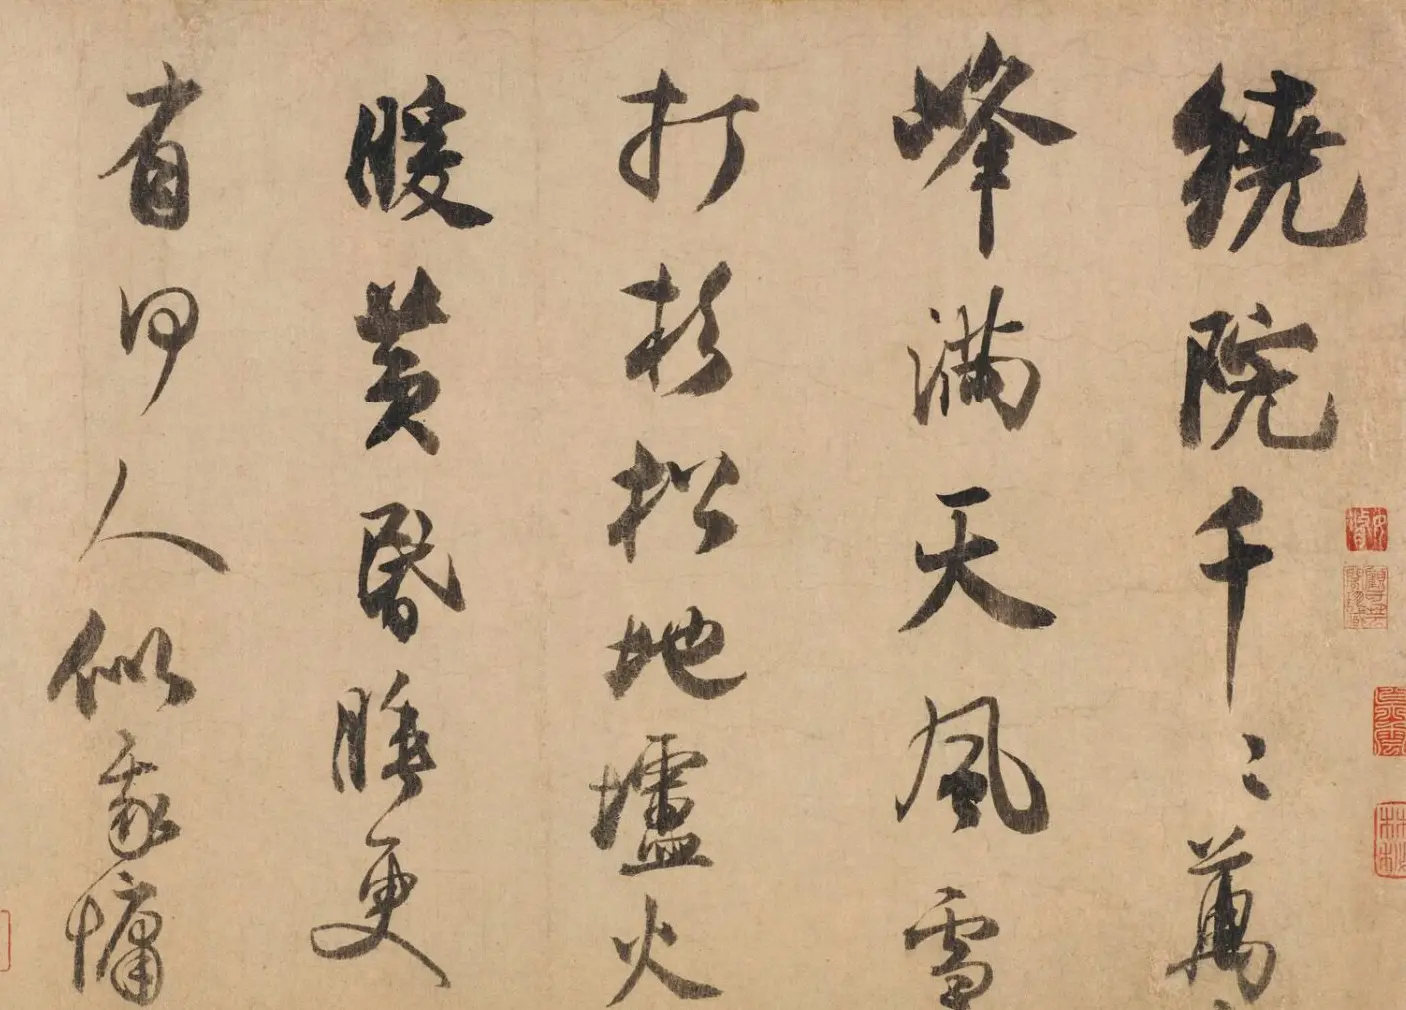 繞院千〻萬
峰滿天風雪
打杉松地壚火
暖黃昬睡更
有何人似我慵